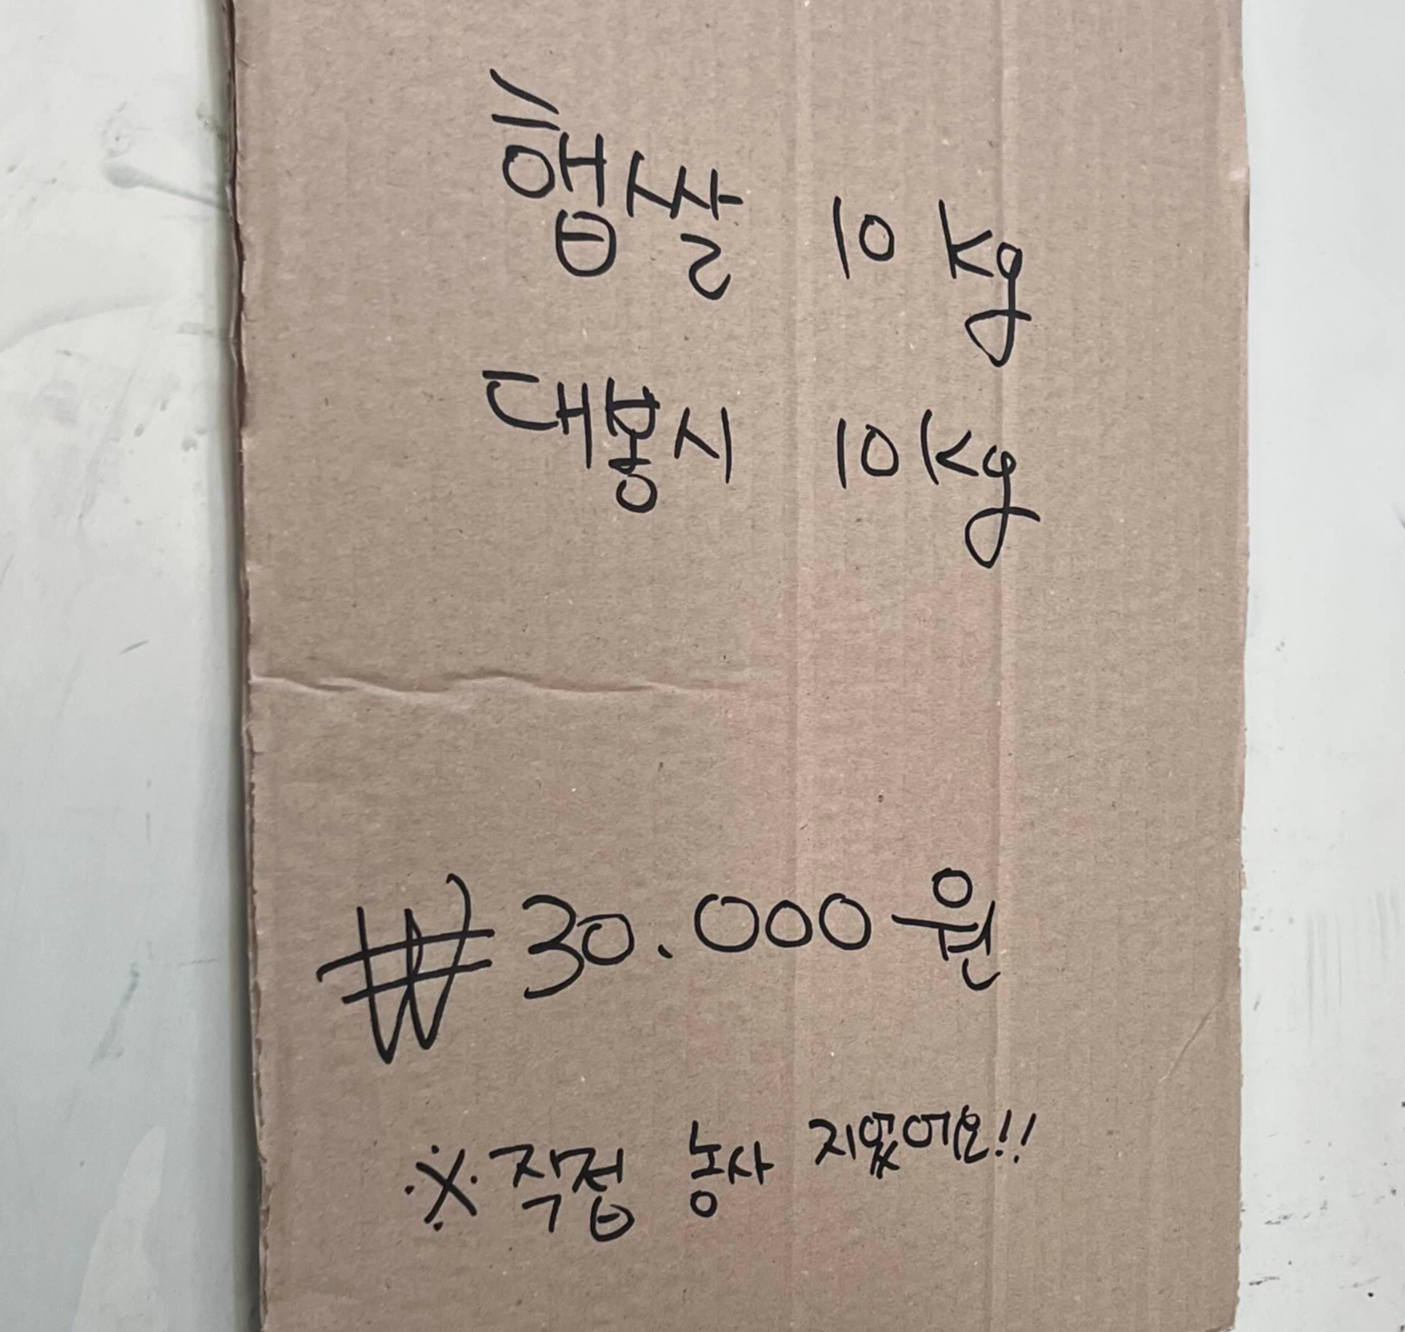 햅쌀 10 kg
대봉시 10kg
₩ 30.000원
※ 직접 농사 지었어요!!